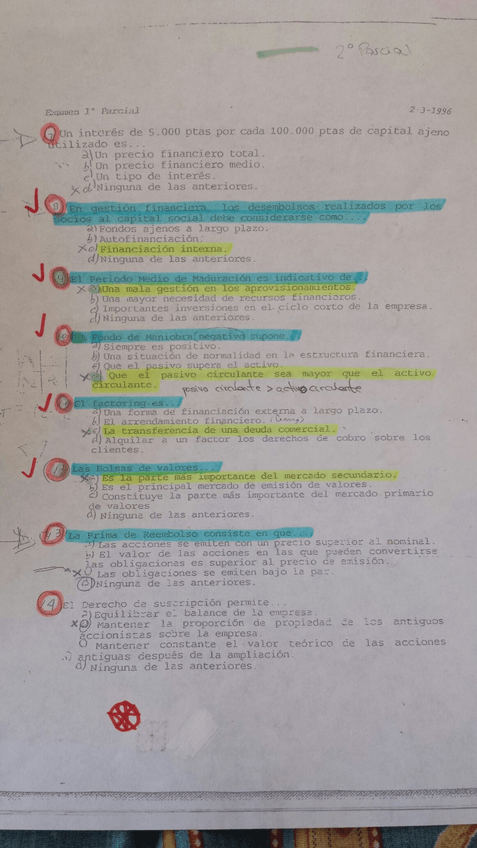 2º Parcial
Examen 1º Parcial 2 3-1996
Un interés de 5.000 ptas por cada 100.000 ptas de capital ajeno
utilizado es...
a) Un precio financiero total.
b) Un precio financiero medio.
c) Un tipo de interés.
x d) Ninguna de las anteriores.
En gestión financiera, los desembolsos realizados por los
socios al capital social debe considerarse como...
a) Fondos ajenos a largo plazo.
b) Autofinanciación.
x c) Financiación interna.
d) Ninguna de las anteriores.
El Periodo Medio de Maduración es indicativo de
x a) Una mala gestión en los aprovisionamientos.
b) Una mayor necesidad de recursos financieros.
c) Importantes inversiones en el ciclo corto de la empresa.
d) Ninguna de las anteriores.
Fondo de Maniobra negativo supone...
a) Siempre es positivo.
b) Una situación de normalidad en la estructura financiera.
c) Que el pasivo supera el activo.
x d) Que el pasivo circulante sea mayor que el activo
circulante. pasivo circulante > activo circulante
El factoring es...
a) Una forma de financiación externa a largo plazo.
b) El arrendamiento financiero.
x c) La transferencia de una deuda comercial.
d) Alquilar a un factor los derechos de cobro sobre los
clientes.
Las Bolsas de valores...
x a) Es la parte más importante del mercado secundario.
b) Es el principal mercado de emisión de valores.
c) Constituye la parte más importante del mercado primario
de valores
d) Ninguna de las anteriores.
13 La Prima de Reembolso consiste en que...
a) Las acciones se emiten con un precio superior al nominal.
b) El valor de las acciones en las que pueden convertirse
las obligaciones es superior al precio de emisión.
x c) Las obligaciones se emiten bajo la par.
Ninguna de las anteriores.
14 El Derecho de suscripción permite...
a) Equilibrar el balance de la empresa.
x b) Mantener la proporción de propiedad de los antiguos
accionistas sobre la empresa.
c) Mantener constante el valor teórico de las acciones
antiguas después de la ampliación.
d) Ninguna de las anteriores.